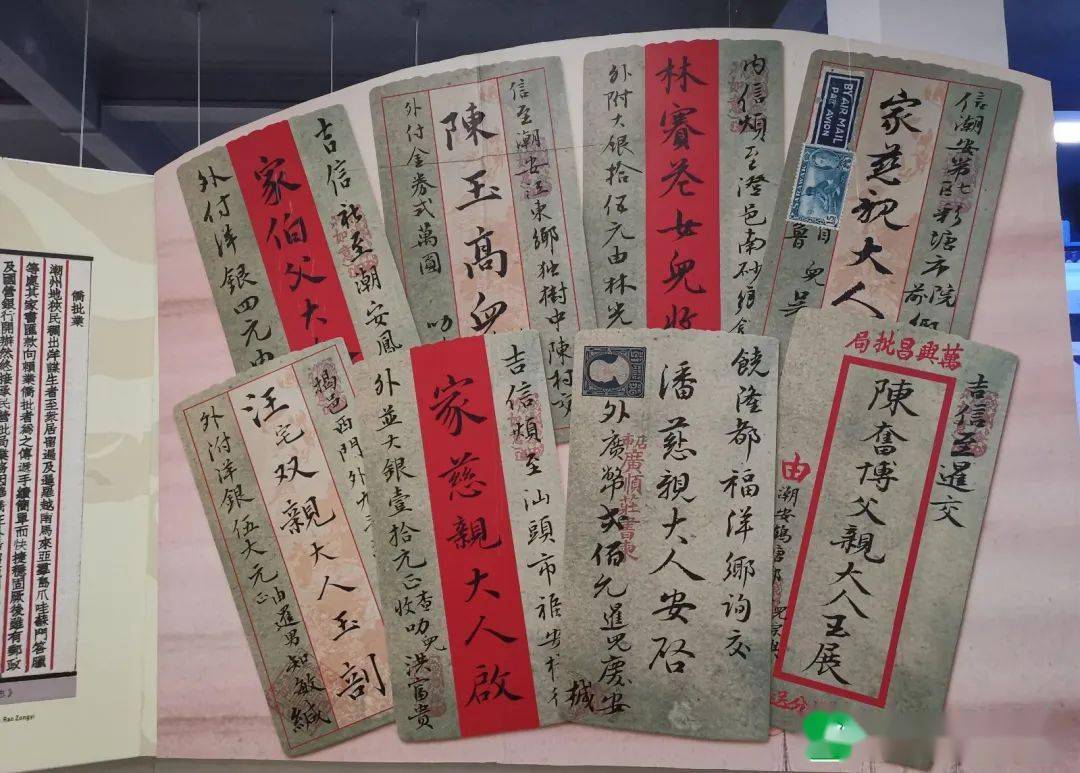 僑批業
潮州地狹民稠出洋謀生者至衆居留遍及暹羅越南馬來亞羣島爪哇蘇門答臘
等處其家書匯款向賴業僑批者爲之傳遞手續簡單而快捷穩固厥後雖有郵政
及國營銀行開辦然終接承民營批局業務
Rao Zongyi
吉信社至潮安鳳
家伯父大人
外付洋銀四元由
信至潮安江東鄉独樹中陳村交
陳玉高兒
外付金券弍萬圓
內信煩至澄邑南砂鄉
林賽巻女兒收
外附大銀拾伍元由林光
信潮安第七區彩塘市院
家慈親大人
兒吳
BY AIR MAIL
PAR AVION
揭邑西門外
汪宅双親大人玉剖
外附洋銀伍大元正
由暹男知敏緘
吉信煩至汕頭市
家慈親大人啟
外並大銀壹拾元正
查收叻兒洪富貴
饒隆都福洋鄉詢交
潘慈親大人安啓
外廣幣弍佰元暹兒慶安
緘
廣順莊書柬
萬興昌批局
吉信至暹交
陳奮博父親大人玉展
由潮安鶴塘